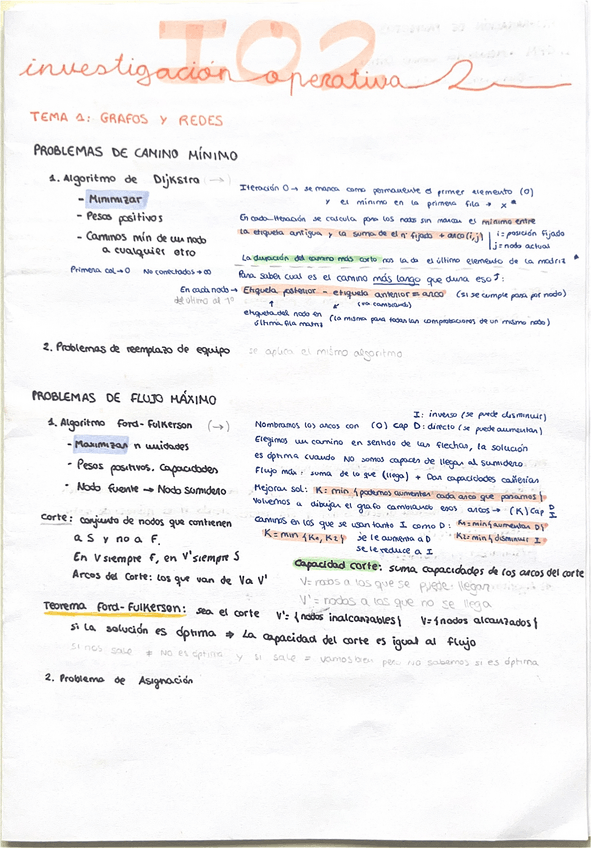 IO2
investigación operativa 2
TEMA 1: GRAFOS Y REDES
PROBLEMAS DE CAMINO MÍNIMO
1. Algoritmo de Dijkstra (→)
- Minimizar
- Pesos positivos
- Caminos mín de un nodo a cualquier otro
Primera col → 0 No conectados → ∞
Iteración 0 → se marca como permanente el primer elemento (0)
y el mínimo en la primera fila → x *
En cada iteración se calcula para los nodos sin marcar el mínimo entre
la etiqueta antigua y la suma de el nº fijado + arco (i,j) | i = posición fijado
j = nodo actual
La duración del camino más corto nos la da el último elemento de la matriz *
Para saber cual es el camino más largo que dura eso ↑:
En cada nodo → Etiqueta posterior - etiqueta anterior = arco (si se cumple pasa por nodo)
del último al 1º
(va cambiando)
etiqueta del nodo en última fila matriz
(la misma para todas las comprobaciones de un mismo nodo)
2. Problemas de reemplazo de equipo se aplica el mismo algoritmo
PROBLEMAS DE FLUJO MÁXIMO
1. Algoritmo Ford-Fulkerson (→)
- Maximizar n unidades
- Pesos positivos. Capacidades
- Nodo fuente → Nodo sumidero
I: inverso (se puede disminuir)
Nombramos los arcos con (0) cap D: directo (se puede aumentar)
Elegimos un camino en sentido de las flechas, la solución
es óptima cuando NO somos capaces de llegar al sumidero
Flujo máx: suma de lo que (llega) + Dan capacidades cañerías
Mejorar sol: K = min {podemos aumentar cada arco que pasamos}
Volvemos a dibujar el grafo cambiando esos arcos → (K) Cap D I
Caminos en los que se usan tanto I como D: K1 = min {aumentar D}
K = min {K1, K2} se le aumenta a D K2 = min {disminuir I}
se le reduce a I
Corte: conjunto de nodos que contienen
a S y no a F.
En V siempre F, en V' siempre S
Arcos del Corte: los que van de V a V'
Capacidad corte: suma capacidades de los arcos del corte
V = nodos a los que se puede llegar
V' = nodos a los que no se llega
Teorema Ford-Fulkerson: sea el corte V' = {nodos inalcanzables} V = {nodos alcanzados}
si la solución es óptima ⇒ La capacidad del corte es igual al flujo
si nos sale ≠ NO es óptima y si sale = vamos bien pero no sabemos si es óptima
2. Problema de Asignación